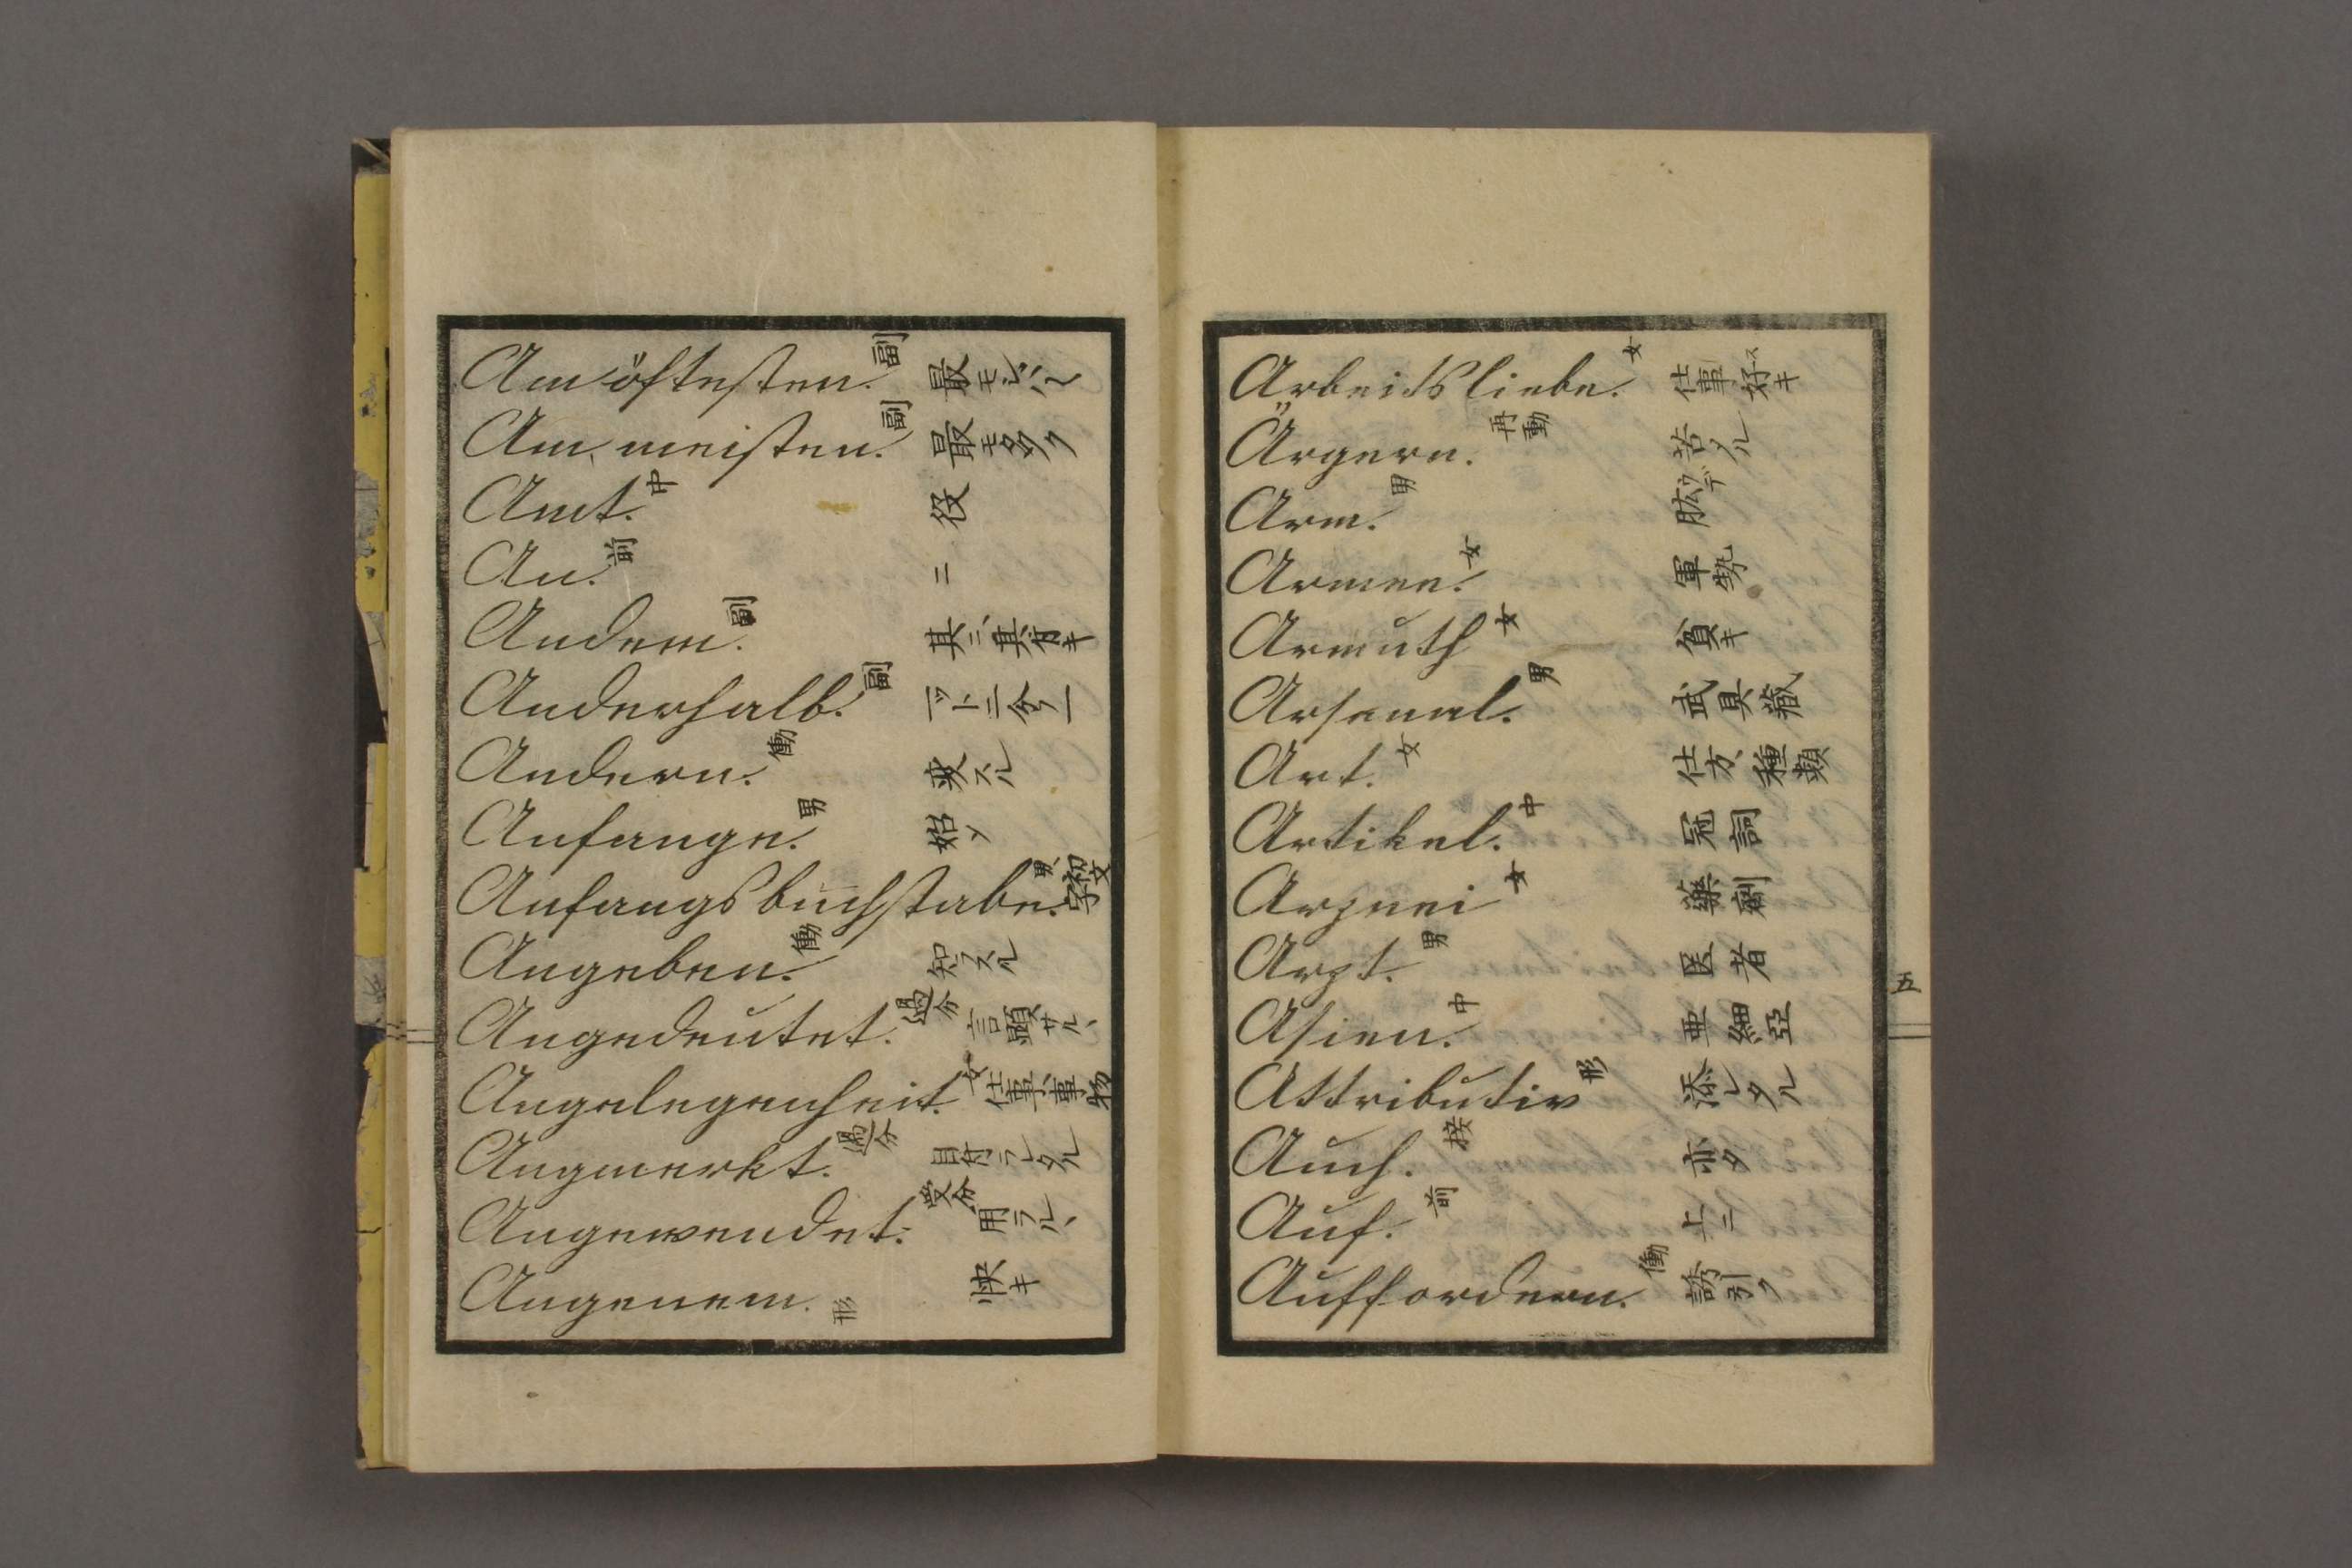 Am öftesten. 副 最モ屡
Am meisten. 副 最モ多ク
Amt. 中 役
An. 前 ニ
Andem. 副 其ニ、其省キ
Anderhalb. 副 一ツト二分ノ一
Andern. 働 変スル
Anfange. 男 始メ
Anfangsbuchstabe. 男 初文字
Angeben. 働 知ラスル
Angedeutet. 過分 言顕サル、
Angelegenheit. 女 仕事、事物
Angmerkt. 過分 目付ラレタル
Angewendet. 受分 用ラル、
Angenem. 形 快キ
Arbeitsliebe. 女 仕事好キ
Ärgern. 再動 苦メル
Arm. 男 肱ウデ
Armee. 女 軍勢
Armuth 女 貧キ
Arsenal. 男 武具蔵
Art. 女 仕方、種類
Artikel. 中 冠詞
Arznei 女 薬劑
Arzt. 男 医者
Asien. 中 亜細亞
Attributiv 形 添レタル
Auch. 接 亦タ
Auf. 前 上ニ
Auffordern. 働 誘引ク
五